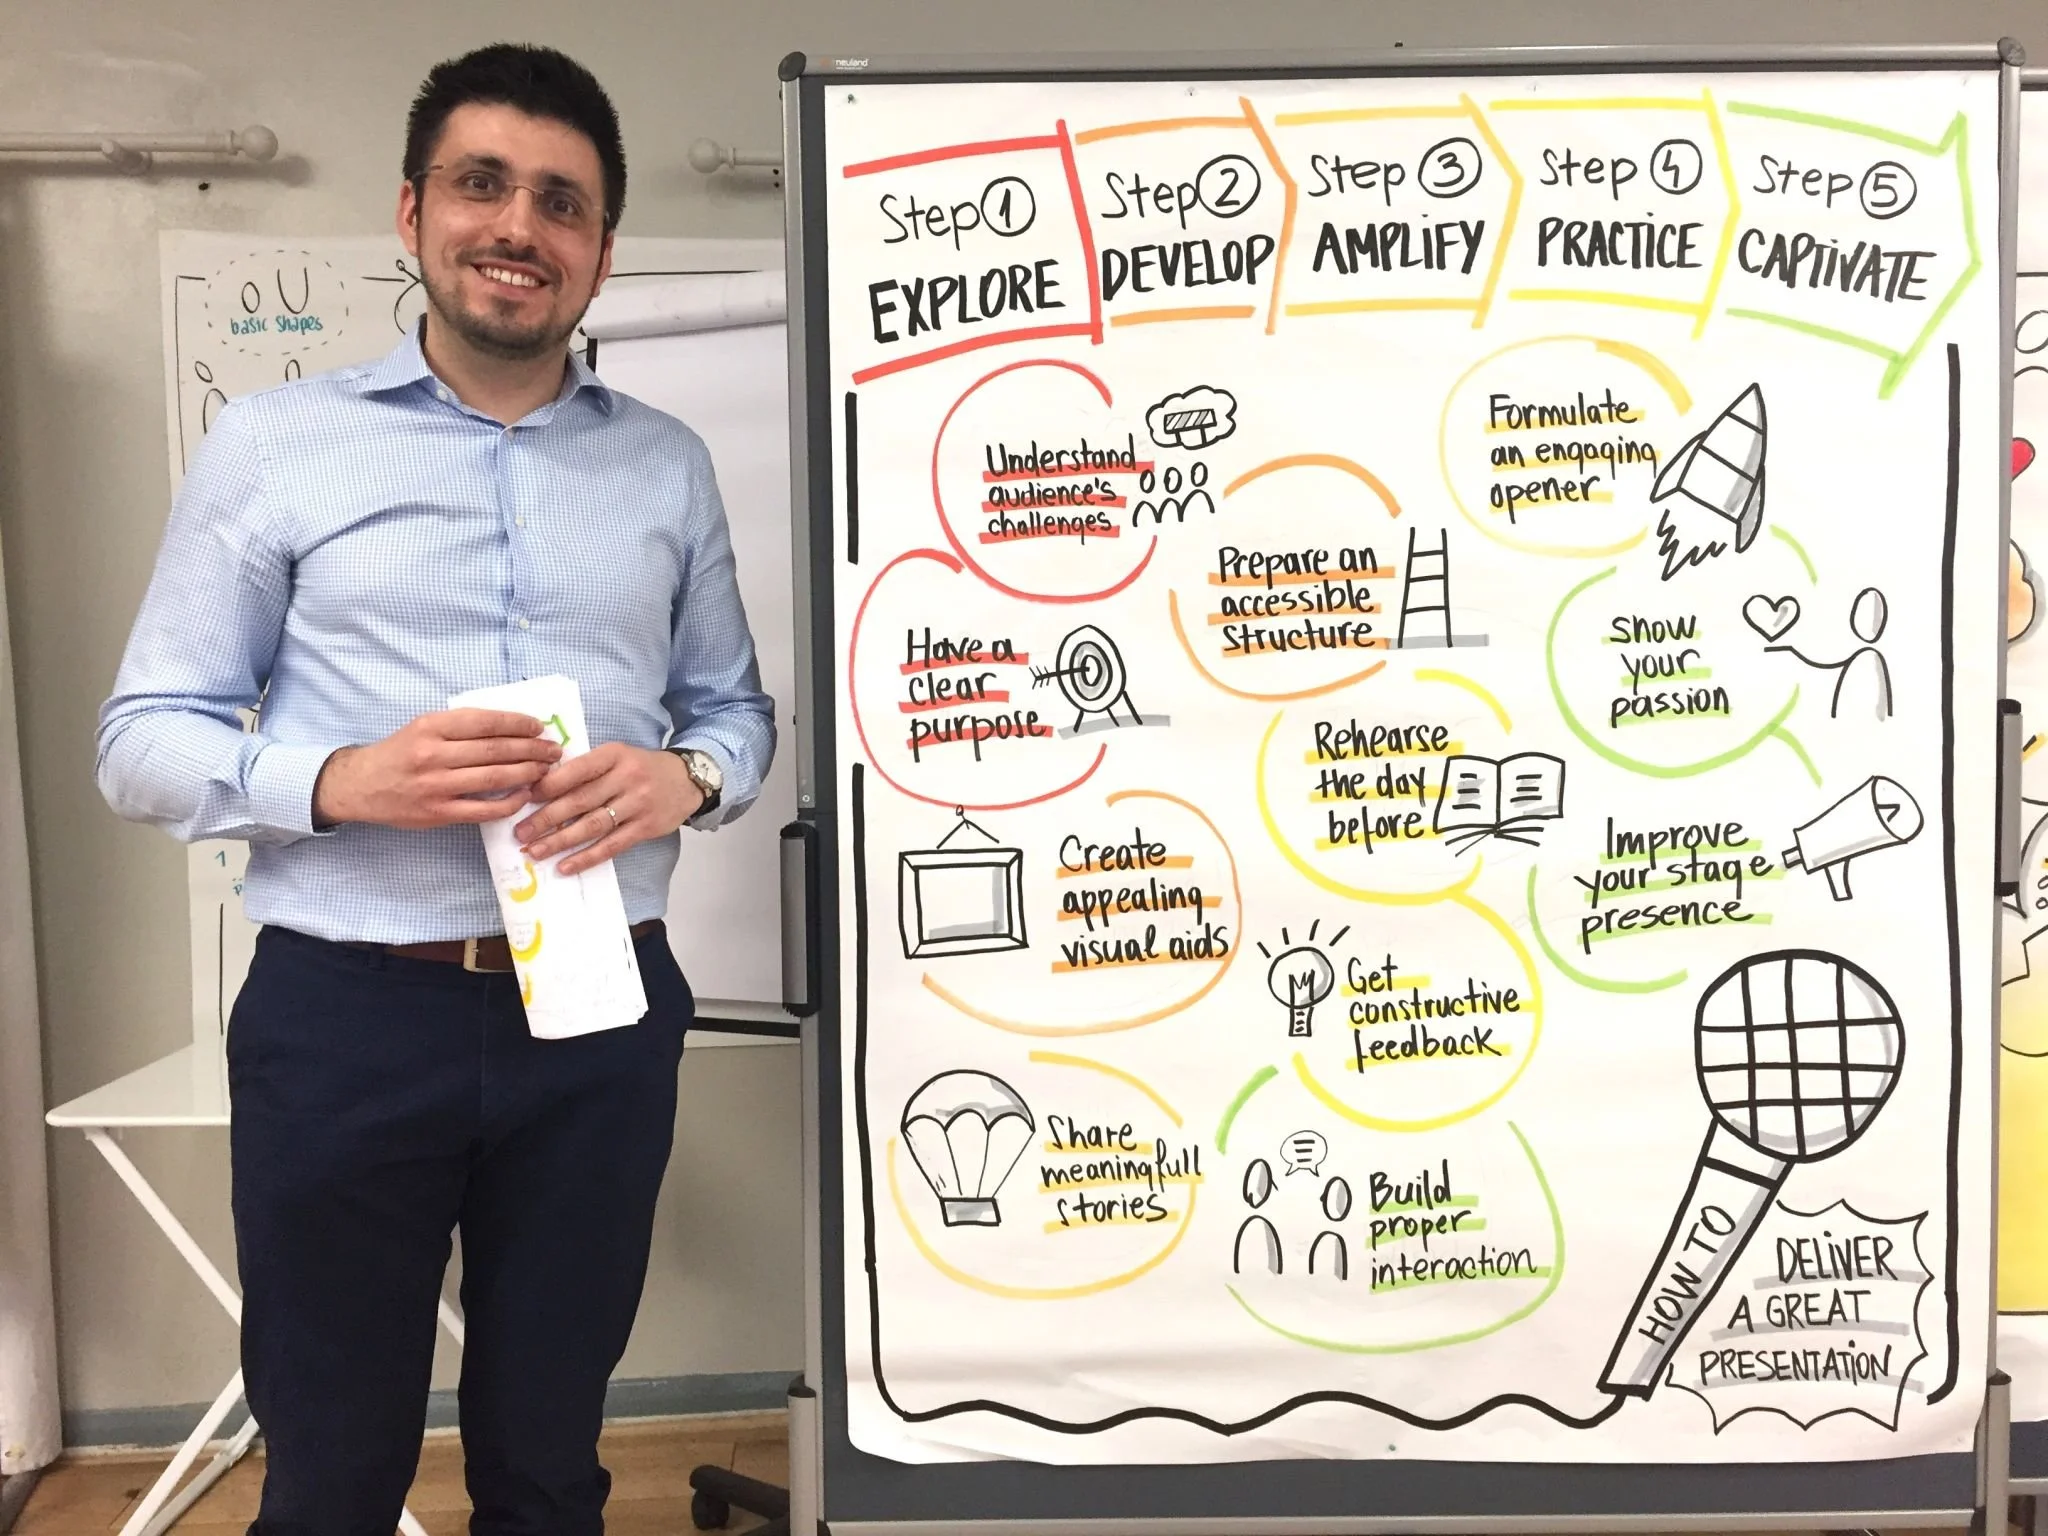 neuland
basic shapes
1
Step 1
EXPLORE
Step 2
DEVELOP
Step 3
AMPLIFY
Step 4
PRACTICE
Step 5
CAPTIVATE
Understand
audience's
challenges
Have a
clear
purpose
Prepare an
accessible
structure
Create
appealing
visual aids
Share
meaningfull
stories
Formulate
an engaging
opener
Rehearse
the day
before
Get
constructive
feedback
Show
your
passion
Improve
your stage
presence
Build
proper
interaction
HOW TO
DELIVER
A GREAT
PRESENTATION